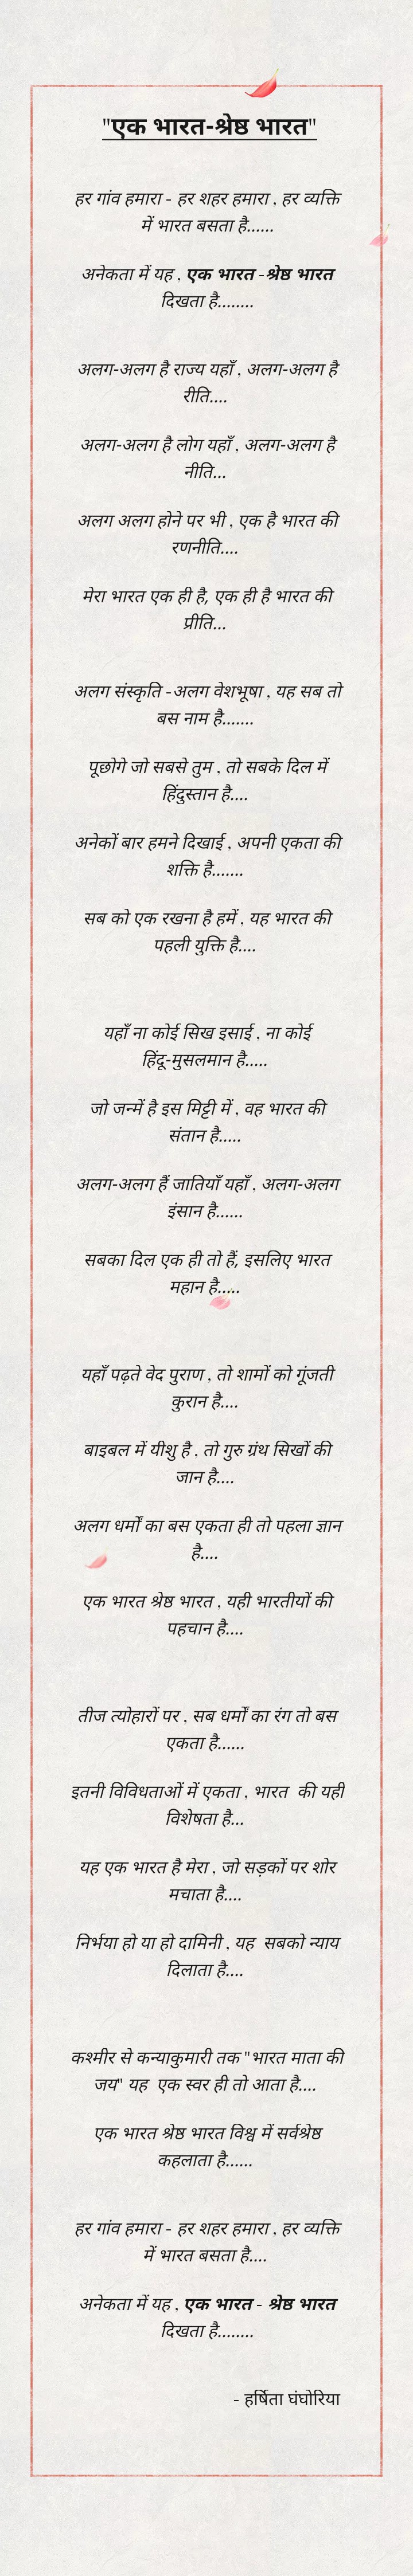 "एक भारत-श्रेष्ठ भारत"
हर गांव हमारा - हर शहर हमारा , हर व्यक्ति
में भारत बसता है......
अनेकता में यह , एक भारत -श्रेष्ठ भारत
दिखता है........
अलग-अलग है राज्य यहाँ , अलग-अलग है
रीति....
अलग-अलग है लोग यहाँ , अलग-अलग है
नीति...
अलग अलग होने पर भी , एक है भारत की
रणनीति....
मेरा भारत एक ही है, एक ही है भारत की
प्रीति...
अलग संस्कृति -अलग वेशभूषा , यह सब तो
बस नाम है.......
पूछोगे जो सबसे तुम , तो सबके दिल में
हिंदुस्तान है....
अनेकों बार हमने दिखाई , अपनी एकता की
शक्ति है.......
सब को एक रखना है हमें , यह भारत की
पहली युक्ति है....
यहाँ ना कोई सिख इसाई , ना कोई
हिंदू-मुसलमान है.....
जो जन्में है इस मिट्टी में , वह भारत की
संतान है.....
अलग-अलग हैं जातियाँ यहाँ , अलग-अलग
इंसान है......
सबका दिल एक ही तो हैं, इसलिए भारत
महान है.....
यहाँ पढ़ते वेद पुराण , तो शामों को गूंजती
कुरान है....
बाइबल में यीशु है , तो गुरु ग्रंथ सिखों की
जान है....
अलग धर्मों का बस एकता ही तो पहला ज्ञान
है....
एक भारत श्रेष्ठ भारत , यही भारतीयों की
पहचान है....
तीज त्योहारों पर , सब धर्मों का रंग तो बस
एकता है......
इतनी विविधताओं में एकता , भारत  की यही
विशेषता है...
यह एक भारत है मेरा , जो सड़कों पर शोर
मचाता है....
निर्भया हो या हो दामिनी , यह  सबको न्याय
दिलाता है....
कश्मीर से कन्याकुमारी तक "भारत माता की
जय" यह  एक स्वर ही तो आता है....
एक भारत श्रेष्ठ भारत विश्व में सर्वश्रेष्ठ
कहलाता है......
हर गांव हमारा - हर शहर हमारा , हर व्यक्ति
में भारत बसता है....
अनेकता में यह , एक भारत - श्रेष्ठ भारत
दिखता है........
- हर्षिता घंघोरिया